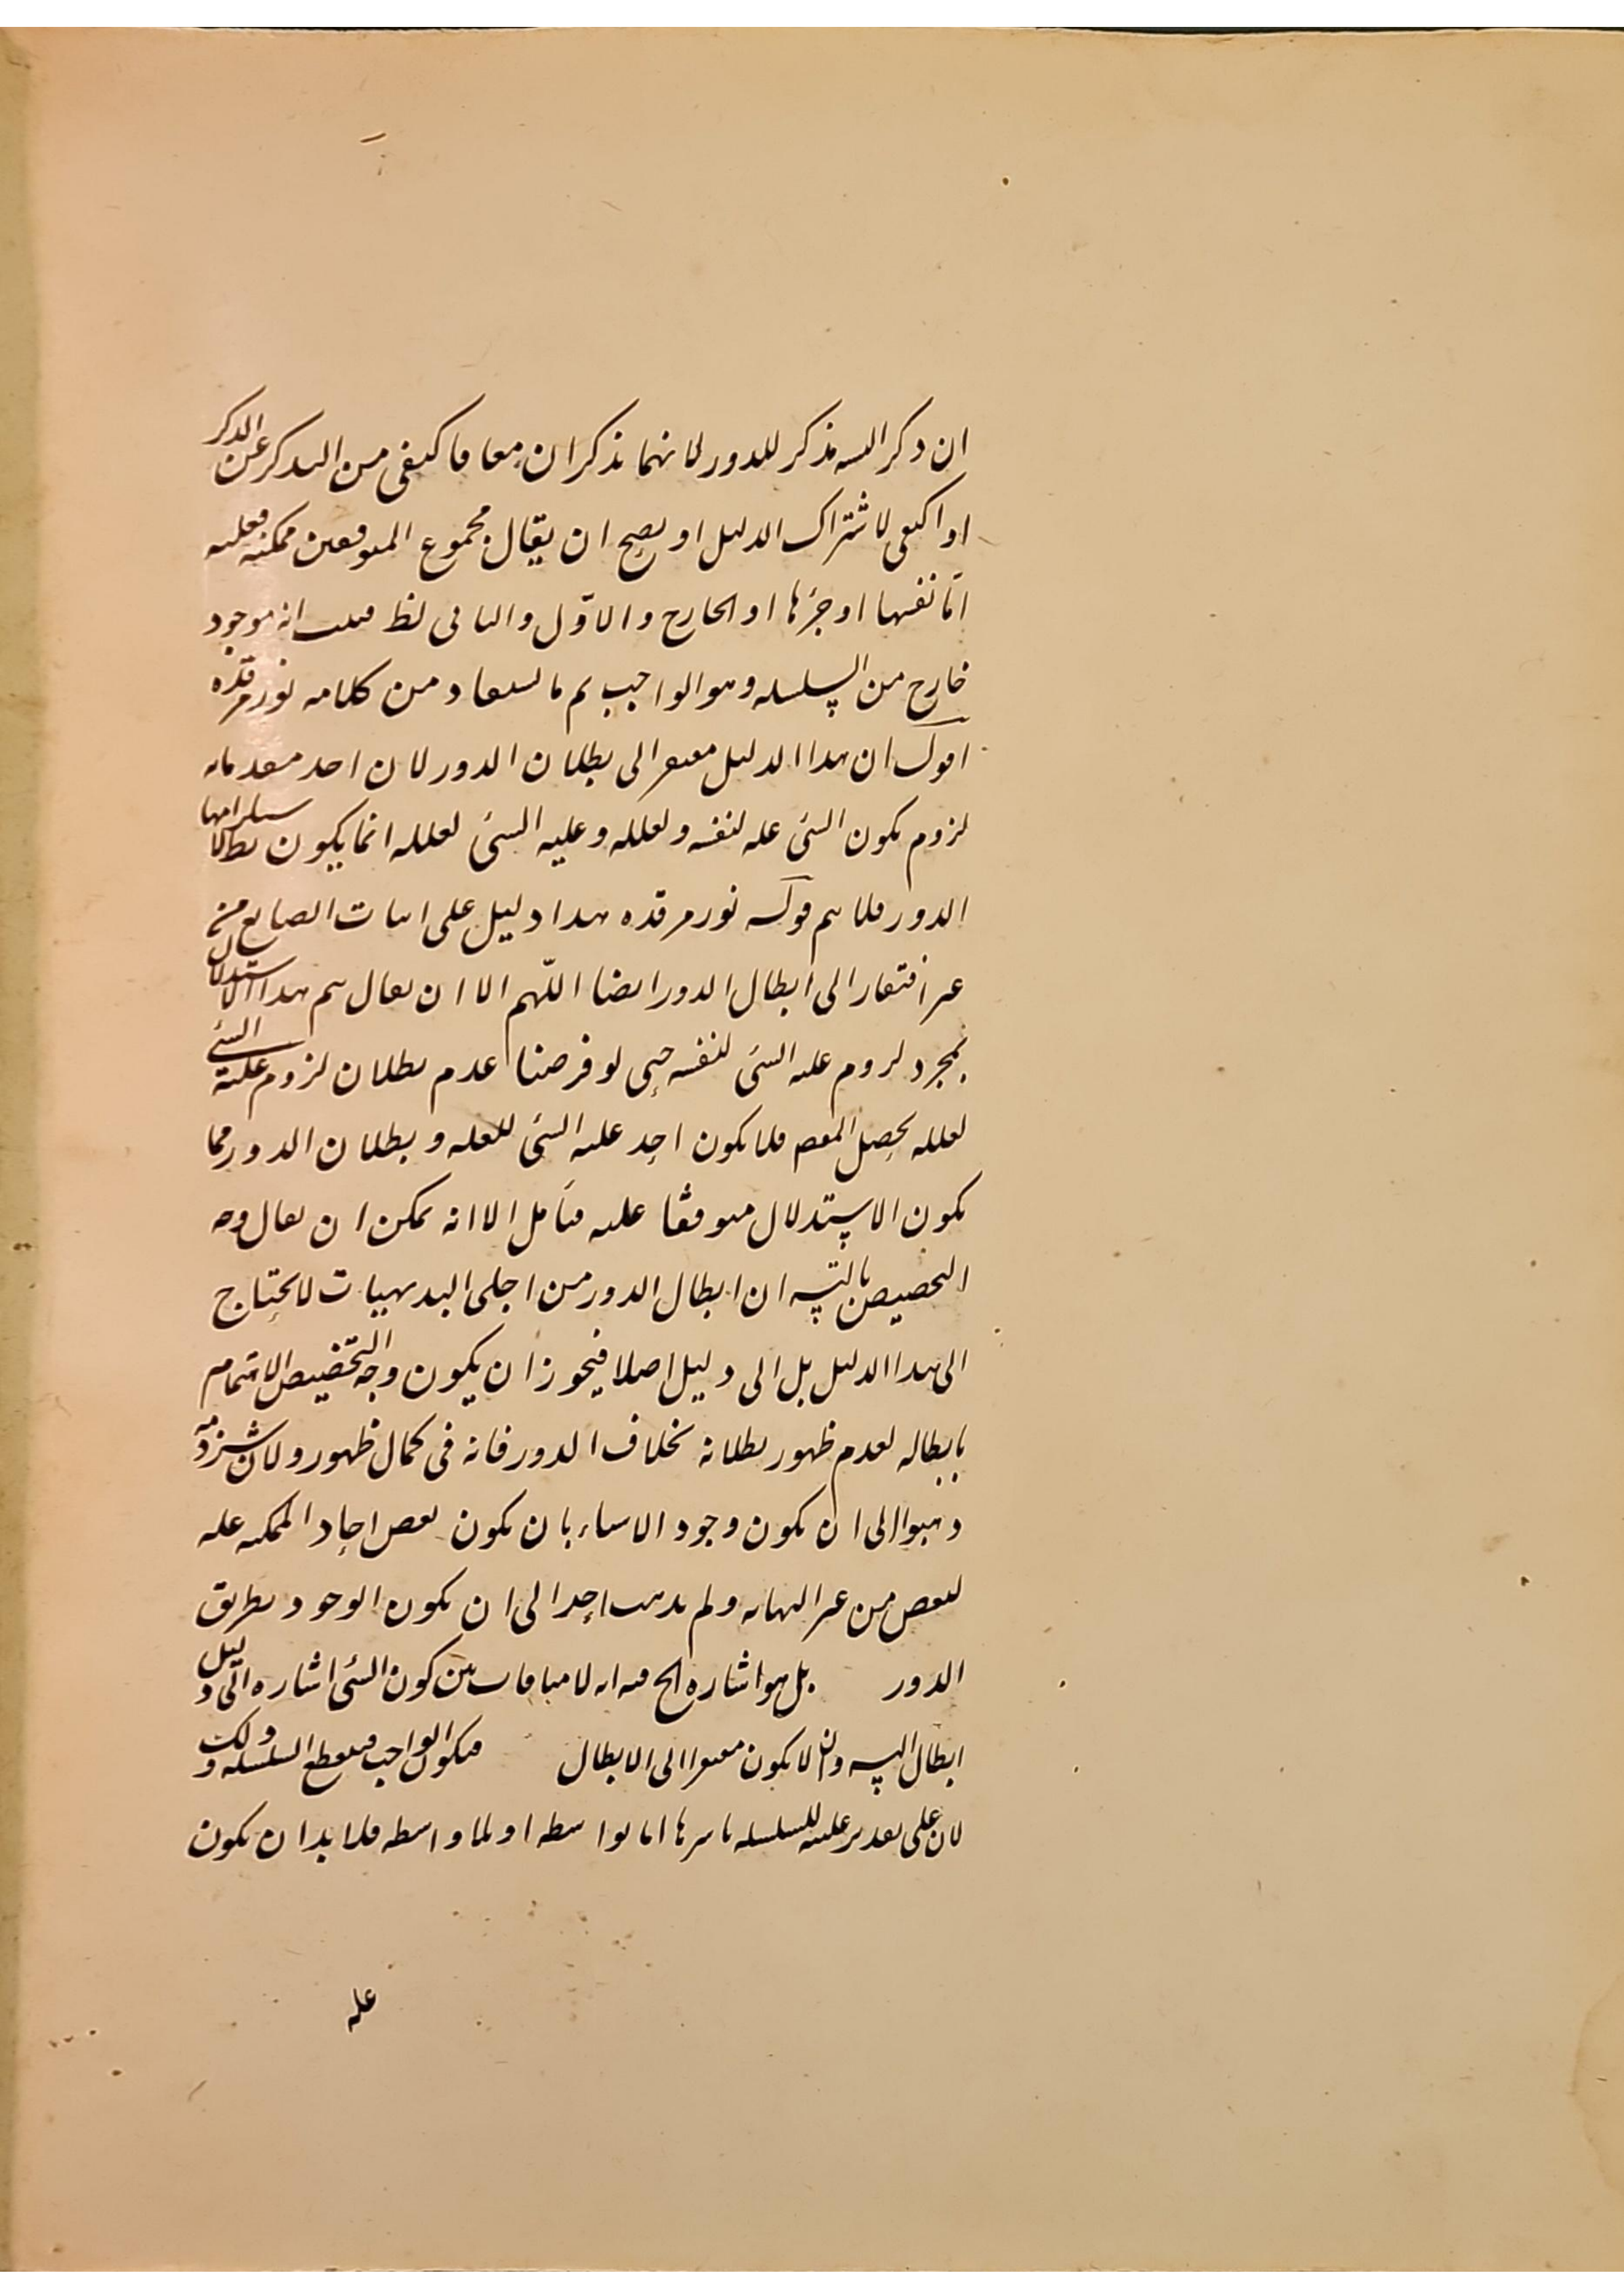 ان ذكر التسه مذكر للدور لانهما يذكران معا فاكتفى من التذكر عن الذكر
او اكتفى لاشتراك الدليل او يصح ان يقال مجموع المتوقفين ممكنة فعليه
اما نفسها او جزءها او الخارج والاول والثاني لظ فثبت انه موجود
خارج من السلسله وهو الواجب ثم ما يستفاد من كلامه نور مرقده
اقول ان هذا الدليل مفتقر الى بطلان الدور لان احد مقدماته
لزوم كون الشئ علة لنفسه ولعلله وعلية الشئ لعلله انما يكون بطلا ستلزامها
الدور فلا يتم قوله نور مرقده هذا دليل على اثبات الصانع من
غير افتقار الى ابطال الدور ايضا اللهم الا ان يقال يتم هذا الاستدلال
بمجرد لزوم علية الشئ لنفسه حتى لو فرضنا عدم بطلان لزوم علية الشئ
لعلله يحصل المقصود فلا يكون اخذ علية الشئ للعله وبطلان الدور مما
يكون الاستدلال متوقفا عليه فتأمل الا انه يمكن ان يقال وجه
التخصيص بالتسه ان ابطال الدور من اجلى البديهيات لا يحتاج
الى هذا الدليل بل الى دليل اصلا فيجوز ان يكون وجه التخصيص الاهتمام
بابطاله لعدم ظهور بطلانه بخلاف الدور فانه في كمال ظهور ولان شرذمة
ذهبوا الى ان يكون وجود الاشياء بان يكون بعض احاد الممكنه علة
لبعض من غير النهايه ولم يذهب احد الى ان يكون الوجود بطريق
الدور بل هو اشاره الخ فيه انه لا منافات بين كون الشئ اشاره الى دليل
ابطال التسه وان لا يكون مفتقرا الى الابطال فيكون الواجب فينقطع السلسله وذلك
لان على تقدير عليته للسلسله باسرها اما بواسطه او بلا واسطه فلا بد ان يكون
علة